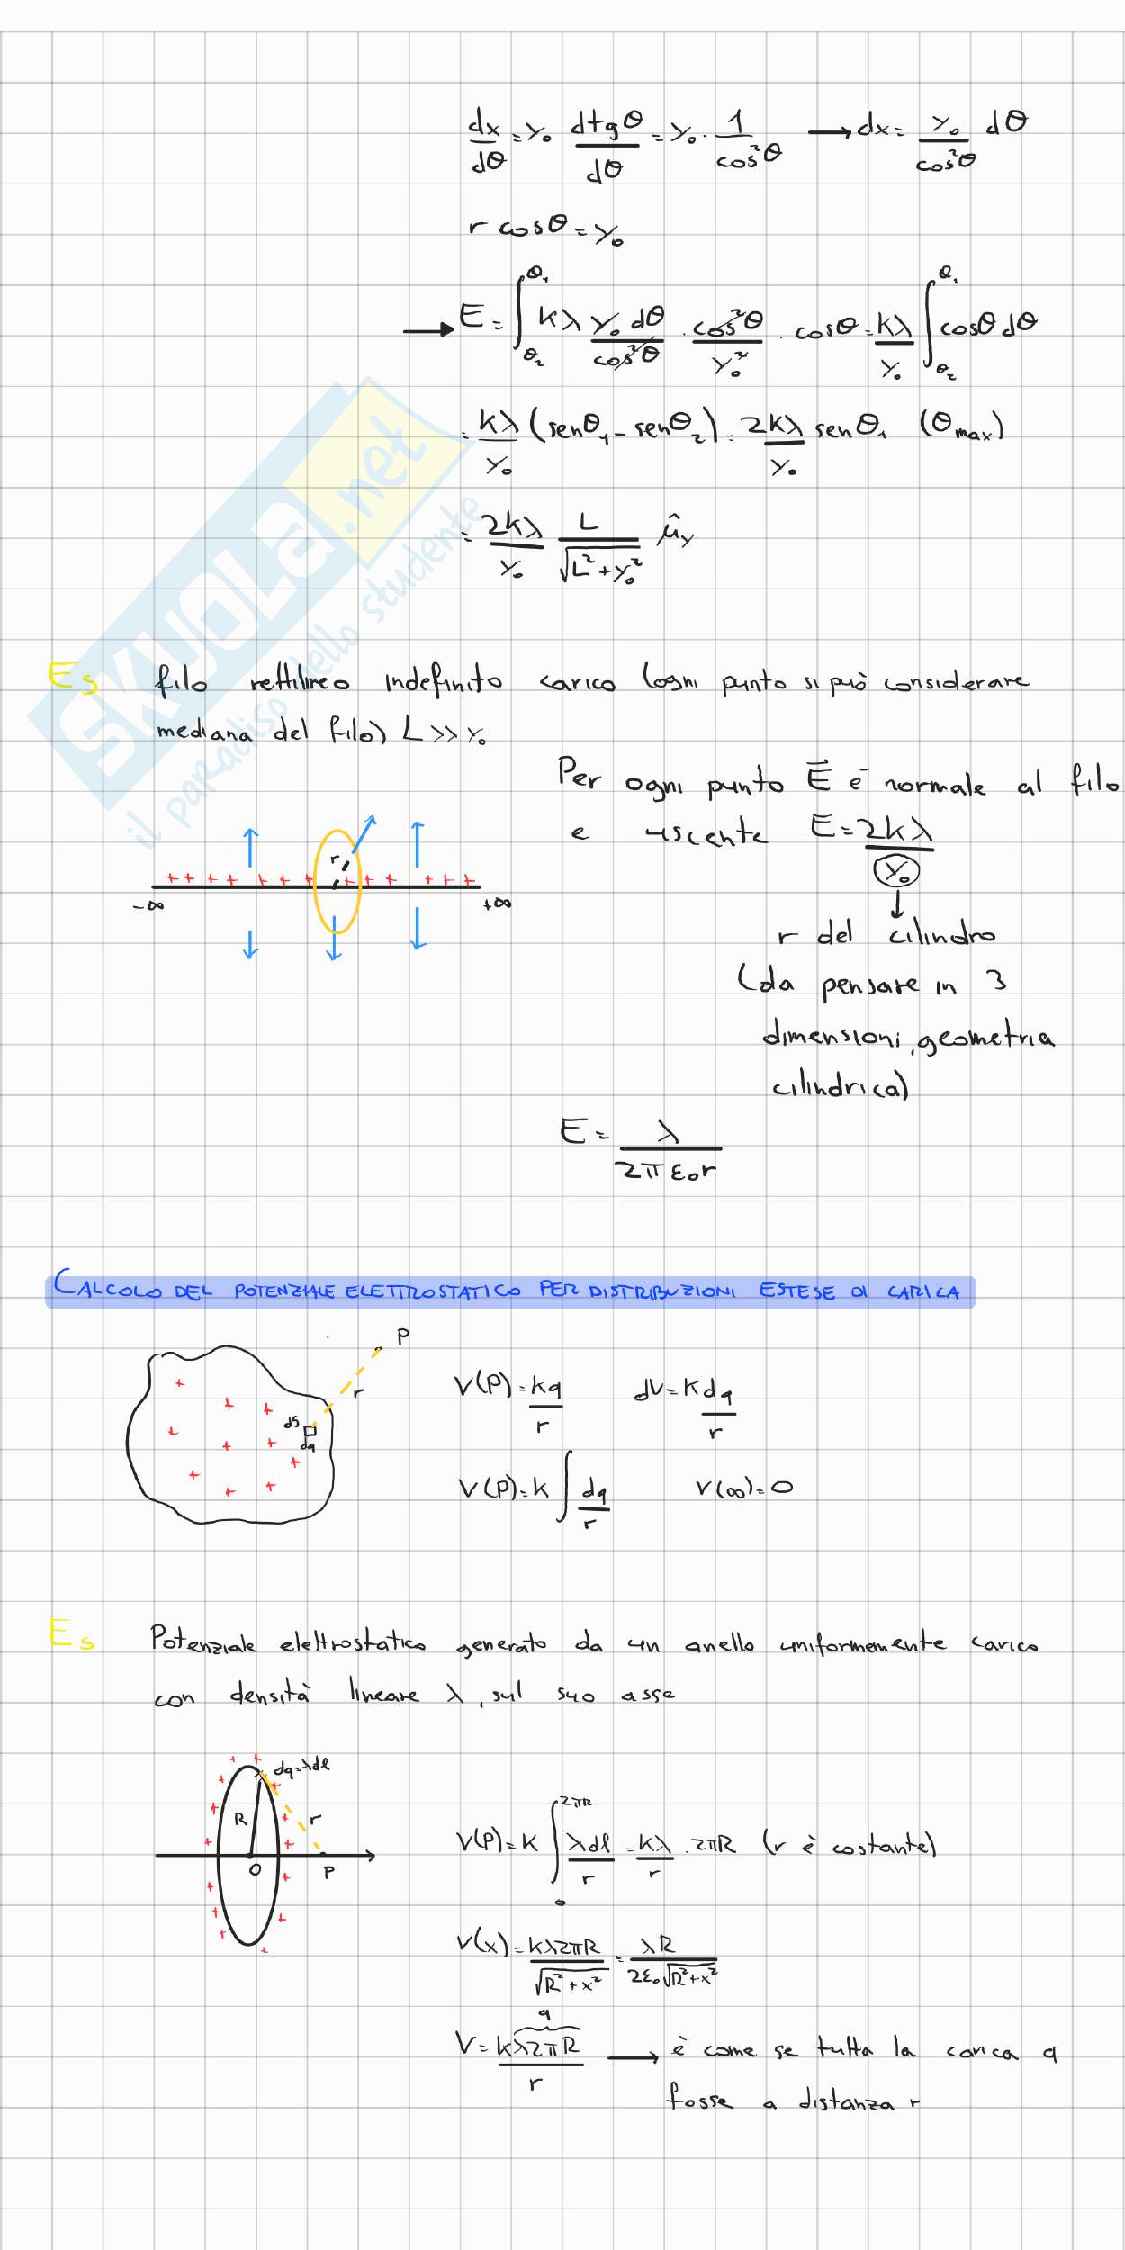 dx/dθ = y₀ dtgθ/dθ = y₀ · 1/cos²θ → dx = y₀/cos²θ dθ
r cosθ = y₀
→ E = ∫_θ₂^θ₁ kλ y₀ dθ/cos²θ · cos²θ/y₀² · cosθ = kλ/y₀ ∫_θ₂^θ₁ cosθ dθ
= kλ/y₀ (senθ₁ - senθ₂) = 2kλ/y₀ senθ₁ (θmax)
= 2kλ/y₀ L/√(L²+y₀²) û_y
SKUOLA.net
il paradiso dello studente
Es filo rettilineo indefinito carico (ogni punto si può considerare
mediana del filo) L >> y₀
Per ogni punto E⃗ è normale al filo
e uscente E = 2kλ/y₀
r
-∞ +∞
r del cilindro
(da pensare in 3
dimensioni, geometria
cilindrica)
E = λ/2πε₀r
CALCOLO DEL POTENZIALE ELETTROSTATICO PER DISTRIBUZIONI ESTESE DI CARICA
P
r
dS
dq
V(P) = kq/r dV = k dq/r
V(P) = k ∫ dq/r V(∞) = 0
Es Potenziale elettrostatico generato da un anello uniformemente carico
con densità lineare λ, sul suo asse
dq = λdl
R r
O P
V(P) = k ∫₀^2πR λdl/r = kλ/r · 2πR (r è costante)
V(x) = kλ2πR/√(R²+x²) = λR/2ε₀√(R²+x²)
q
V = kλ2πR/r → è come se tutta la carica q
fosse a distanza r